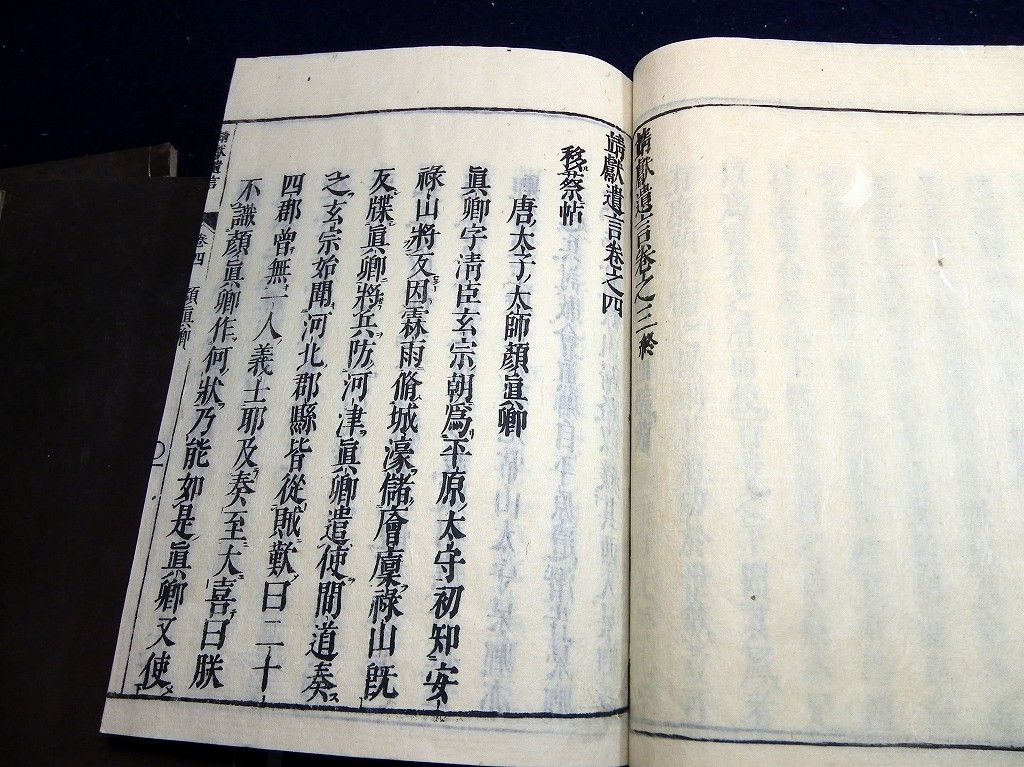 靖獻遺言卷之三終
靖獻遺言卷之四
移蔡帖
唐太子太師顏眞卿
眞卿字清臣玄宗朝爲平原太守初知安
祿山將反因霖雨脩城濠儲廥廩祿山旣
反牒眞卿將兵防河津眞卿遣使間道奏
之玄宗始聞河北郡縣皆從賊歎曰二十
四郡曾無一人義士耶及奏至大喜曰朕
不識顏眞卿作何狀乃能如是眞卿又使
靖獻遺言 卷四 顏眞卿